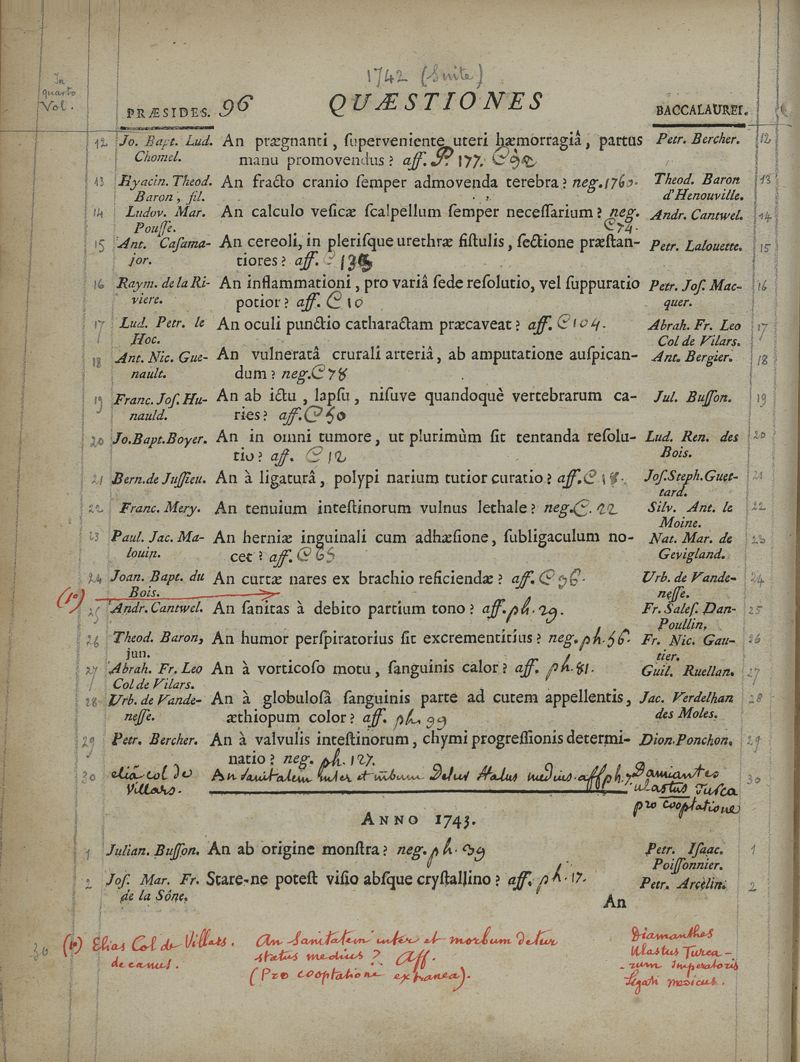 1742 (Suite)
In quarto Vol.
PRÆSIDES. 96 QUÆSTIONES BACCALAUREI.
12 Jo. Bapt. Lud. An prægnanti, ſuperveniente uteri hæmorragiâ, partus Petr. Bercher. 12
Chomel. manu promovendus? aff. P. 177. C 92
13 Hyacin. Theod. An fracto cranio ſemper admovenda terebra? neg. 1760. Theod. Baron 13
Baron, fil. d'Henouville.
14 Ludov. Mar. An calculo veſicæ ſcalpellum ſemper neceſſarium? neg. Andr. Cantwel. 14
Pouſſe. C 74.
15 Ant. Caſama- An cereoli, in pleriſque urethræ fiſtulis, ſectione præſtan- Petr. Lalouette. 15
jor. tiores? aff. C
16 Raym. de la Ri- An inflammationi, pro variâ ſede reſolutio, vel ſuppuratio Petr. Joſ. Mac- 16
viere. potior? aff. C 10 quer.
17 Lud. Petr. le An oculi punctio catharactam præcaveat? aff. C 104. Abrah. Fr. Leo 17
Hoc. Col de Vilars.
18 Ant. Nic. Gue- An vulneratâ crurali arteriâ, ab amputatione auſpican- Ant. Bergier. 18
nault. dum? neg. C 78
19 Franc. Joſ. Hu- An ab ictu, lapſu, niſuve quandoquè vertebrarum ca- Jul. Buſſon. 19
nauld. ries? aff. C 50
20 Jo. Bapt. Boyer. An in omni tumore, ut plurimùm ſit tentanda reſolu- Lud. Ren. des 20
tio? aff. C 12 Bois.
21 Bern. de Juſſieu. An à ligaturâ, polypi narium tutior curatio? aff. C 18. Joſ. Steph. Guet- 21
tard.
22 Franc. Mery. An tenuium inteſtinorum vulnus lethale? neg. C. 22 Silv. Ant. le 22
Moine.
23 Paul. Jac. Ma- An herniæ inguinali cum adhæſione, ſubligaculum no- Nat. Mar. de 23
louin. cet? aff. C 65 Gevigland.
24 Joan. Bapt. du An curtæ nares ex brachio reficiendæ? aff. C 96. Urb. de Vande- 24
Bois. neſſe.
25 Andr. Cantwel. An ſanitas à debito partium tono? aff. ph. 29. Fr. Saleſ. Dan- 25
Poullin,
26 Theod. Baron, An humor perſpiratorius ſit excrementitius? neg. ph. 56. Fr. Nic. Gau- 26
jun. tier.
27 Abrah. Fr. Leo An à vorticoſo motu, ſanguinis calor? aff. ph. 81. Guil. Ruellan. 27
Col de Vilars.
28 Urb. de Vande- An à globuloſâ ſanguinis parte ad cutem appellentis, Jac. Verdelhan 28
neſſe. æthiopum color? aff. ph. 99 des Moles.
29 Petr. Bercher. An à valvulis inteſtinorum, chymi progreſſionis determi- Dion. Ponchon. 29
natio? neg. ph. 127.
30 elia col de An sanitatem inter et morbum Detur Status medius. aff ph. 7 Damiantes 30
Villars. ulastus Turca
pro cooptatione
ANNO 1743.
1 Julian. Buſſon. An ab origine monſtra? neg. ph. 29 Petr. Iſaac. 1
Poiſſonnier.
2 Joſ. Mar. Fr. Stare-ne poteſt viſio abſque cryſtallino? aff. ph. 17. Petr. Arcelin. 2
de la Sône.
An
30 Elias Col de Villars. An Sanitatem inter et morbum Detur Diamanthes
decanus. status medius? Aff. Ulastus Turca-
(Pro cooptatione extranea). rum Imperatoris
Legati medicus.